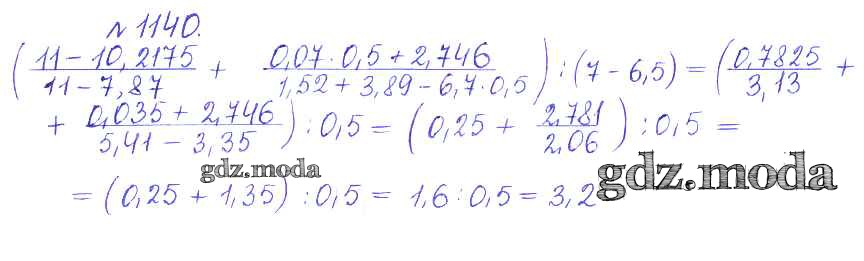 № 1140.
(11 − 10,2175 / 11 − 7,87 + 0,07 · 0,5 + 2,746 / 1,52 + 3,89 − 6,7 · 0,5) : (7 − 6,5) = (0,7825 / 3,13 +
+ 0,035 + 2,746 / 5,41 − 3,35) : 0,5 = (0,25 + 2,781 / 2,06) : 0,5 =
gdz.moda
gdz.moda
= (0,25 + 1,35) : 0,5 = 1,6 : 0,5 = 3,2